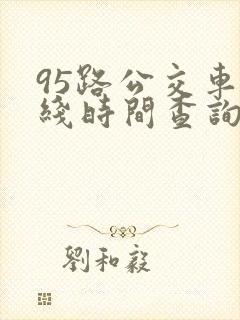 95路公交車
綫時間查詢
劉和毅